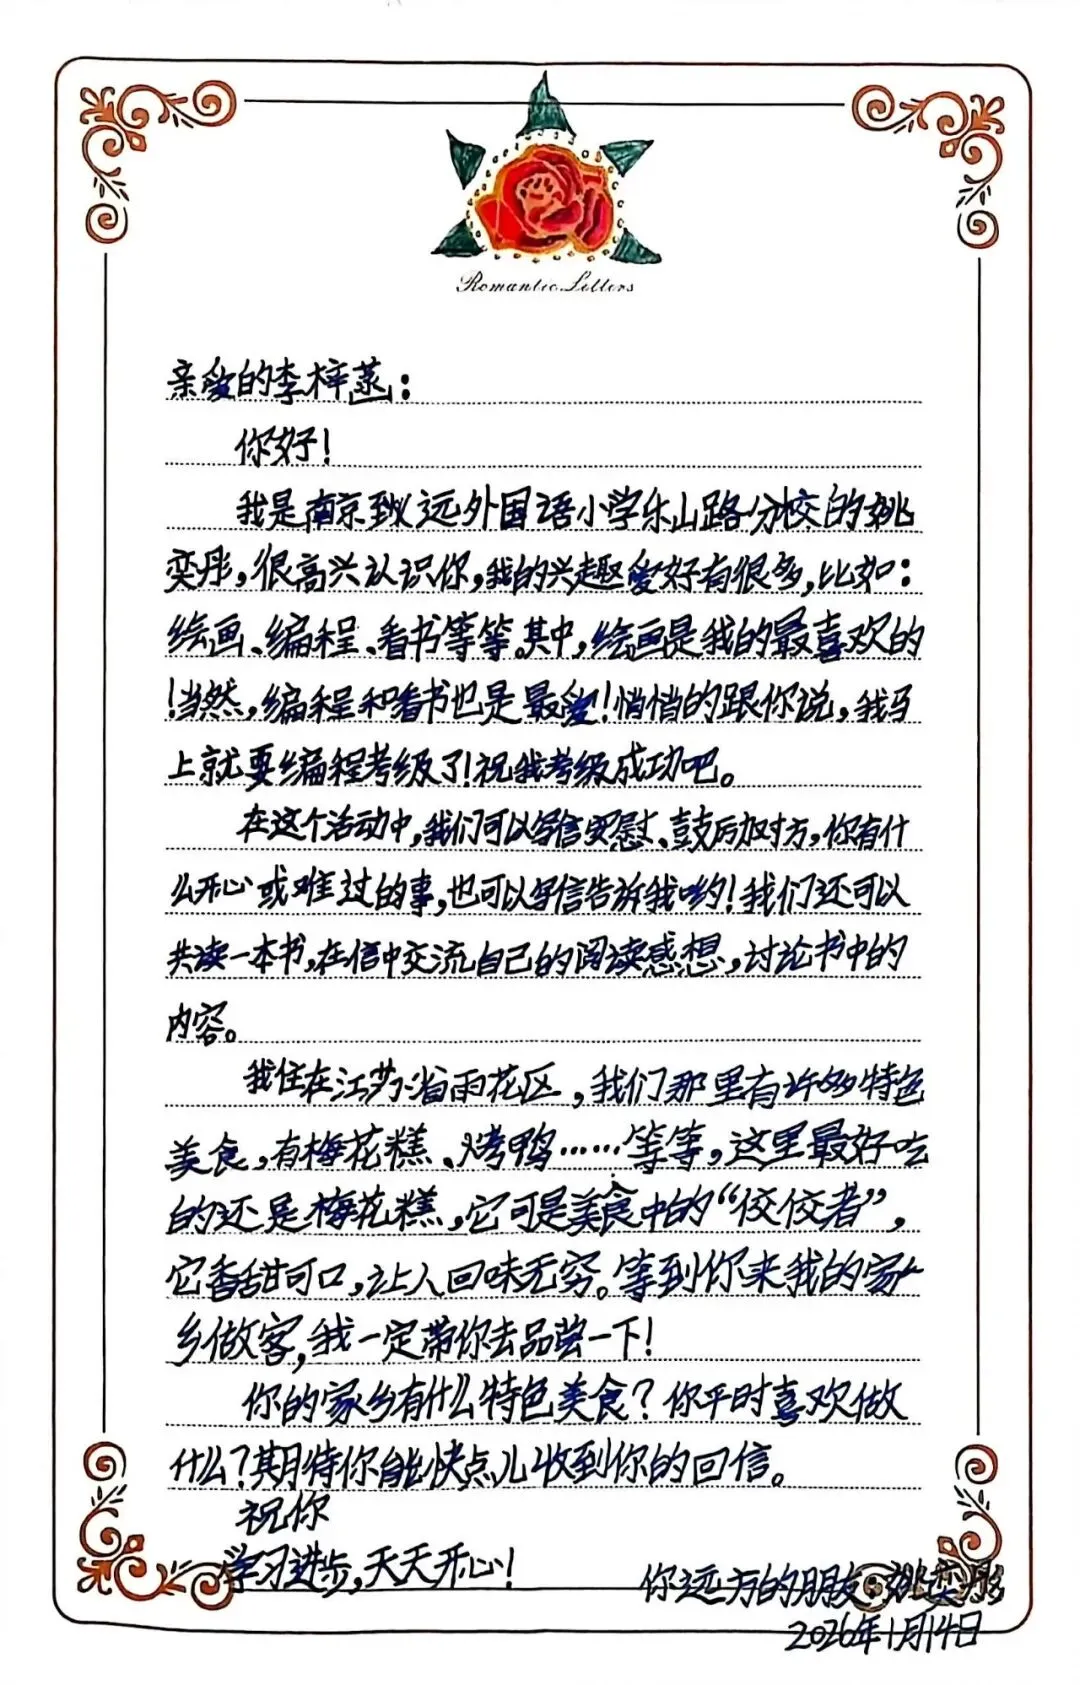 Romantic Letters
亲爱的李梓菡：
你好！
我是南京致远外国语小学乐山路分校的姚
奕彤，很高兴认识你，我的兴趣爱好有很多，比如：
绘画、编程、看书等等，其中，绘画是我的最喜欢的
！当然，编程和看书也是最爱！悄悄的跟你说，我马
上就要编程考级了！祝我考级成功吧。
在这个活动中，我们可以写信安慰、鼓励对方，你有什
么开心或难过的事，也可以写信告诉我哟！我们还可以
共读一本书，在信中交流自己的阅读感想，讨论书中的
内容。
我住在江苏省雨花区，我们那里有许多特色
美食，有梅花糕、烤鸭……等等，这里最好吃
的还是梅花糕，它可是美食中的“佼佼者”，
它香甜可口，让人回味无穷。等到你来我的家
乡做客，我一定带你去品尝一下！
你的家乡有什么特色美食？你平时喜欢做
什么？期待你能快点儿收到你的回信。
祝你
学习进步，天天开心！
你远方的朋友：姚奕彤
2026年1月14日